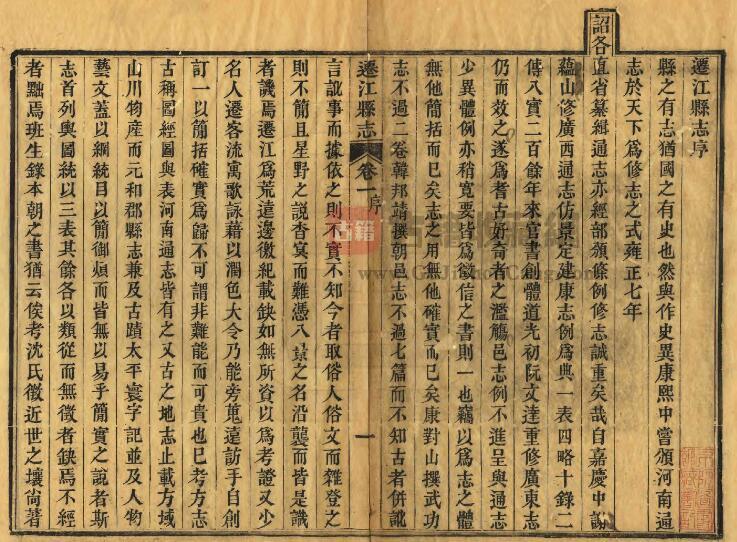 遷江縣志序
縣之有志猶國之有史也然與作史異康熙中嘗頒河南通
志於天下爲修志之式雍正七年
詔各直省纂緝通志亦經部頒條例修志誠重矣哉自嘉慶中謝
蘊山修廣西通志仿景定建康志例爲典一表四略十錄二
傳八實二百餘年來官書創體道光初阮文達重修廣東志
仍而效之遂爲耆古好奇者之濫觴邑志例不進呈與通志
少異體例亦稍寬要皆爲徵信之書則一也竊以爲志之體
無他簡括而已矣志之用無他確實而已矣康對山撰武功
志不過二卷韓邦靖撰朝邑志不過七篇而不知古者併訛
遷江縣志 卷一 序 一
言訛事而據依之則不實不知今者取俗人俗文而雜登之
則不簡且星野之說杳冥而難憑八景之名沿襲而皆是識
者譏焉遷江爲荒遠邊徼紀載缺如無所資以爲考證又少
名人遷客流寓歌詠藉以潤色大令乃能旁蒐遠訪手自創
訂一以簡括確實爲歸不可謂非難能而可貴也已考方志
古稱圖經圖與表河南通志皆有之又古之地志止載方域
山川物產而元和郡縣志兼及古蹟太平寰宇記並及人物
藝文蓋以綱統目以簡御煩而皆無以易乎簡實之說者斯
志首列輿圖統以三表其餘各以類從而無徵者缺焉不經
者黜焉班生錄本朝之書猶云俟考沈氏徵近世之壤尙著
古籍